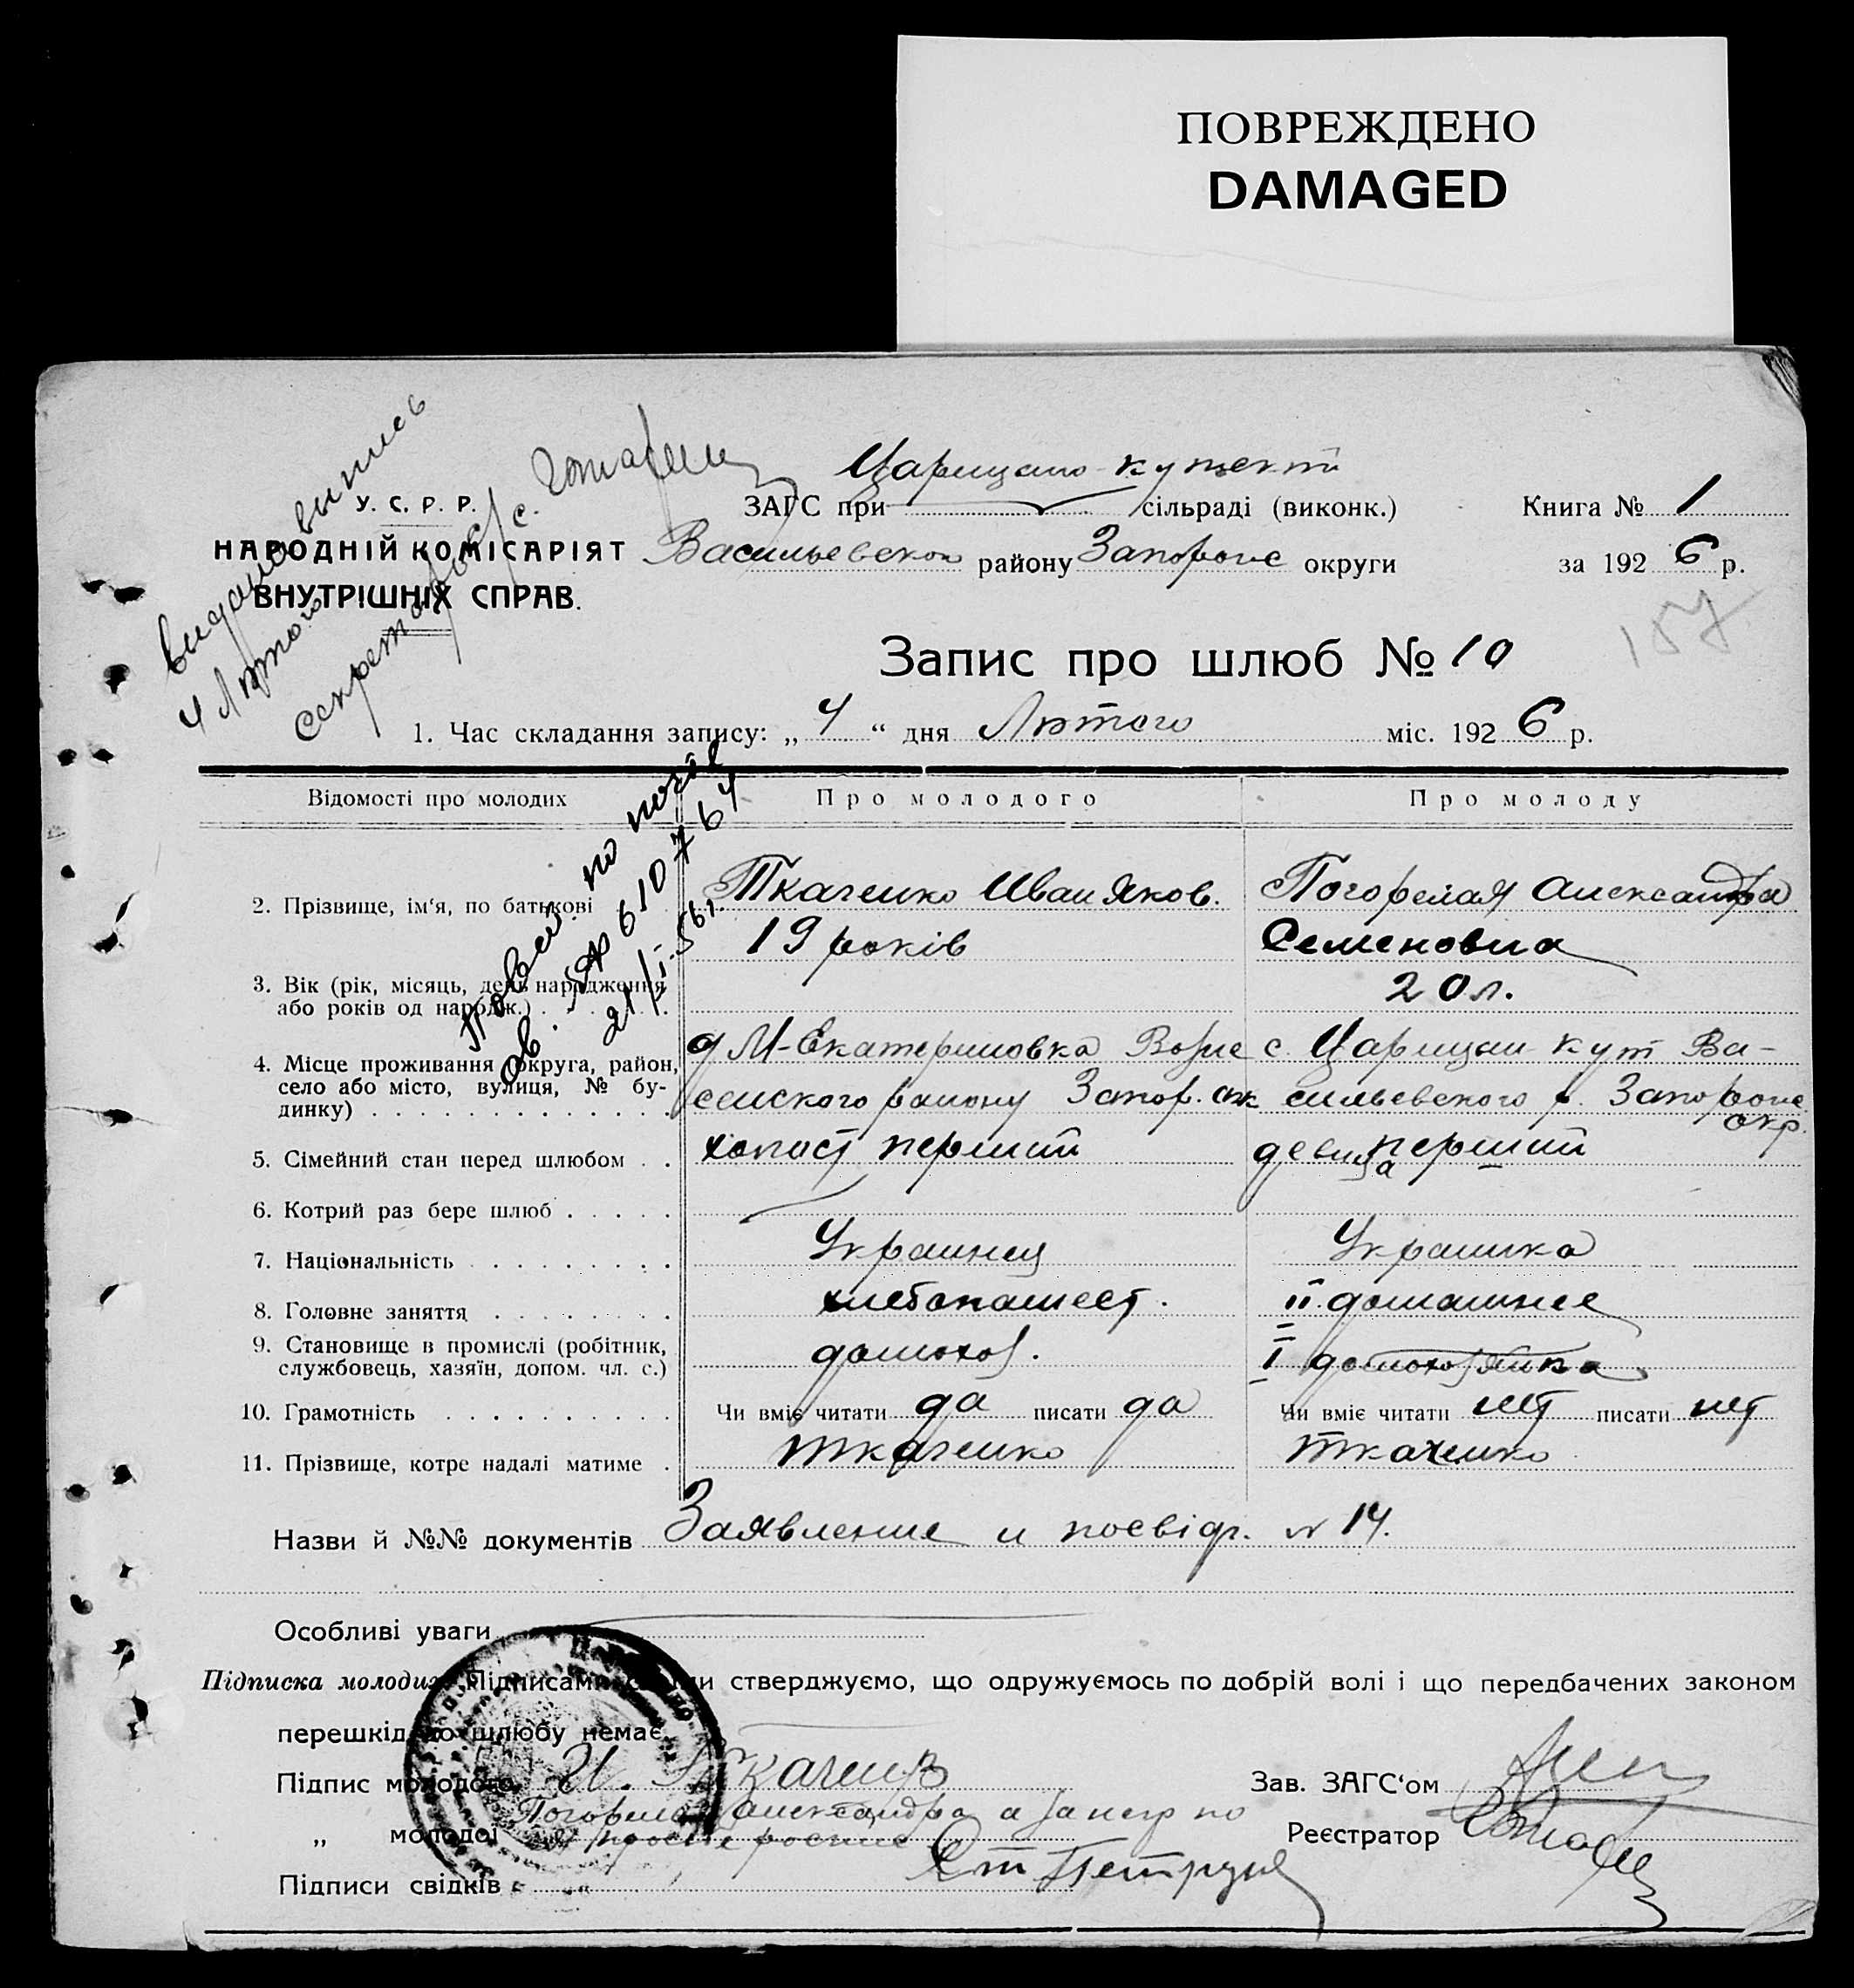 ПОВРЕЖДЕНО
DAMAGED
видано выпись
4 Лютого
секретарь с/с.
У. С. Р. Р.
НАРОДНІЙ КОМІСАРІЯТ
ВНУТРІШНІХ СПРАВ.
Царицыно-кутскт
ЗАГС при сільраді (виконк.)
Васильевском району Запорож округи
Книга № 1
за 1926 р.
157
Запис про шлюб № 10
1. Час складання запису: „ 4 “ дня Лютого міс. 1926 р.
Відомості про молодих
Про молодого
Про молоду
2. Прізвище, ім‘я, по батькові
Ткаченко Иван Яков.
Погорелая Александра
Семеновна
3. Вік (рік, місяць, день народження
або років од народж.)
19 років
20 л.
4. Місце проживання (округа, район,
село або місто, вулиця, № бу-
динку)
д М-Екатериновка Возне
сенского району Запор. окр
с. Царицын кут Ва-
сильевского р. Запорож
окр.
5. Сімейний стан перед шлюбом
холост перший
девица перший
6. Котрий раз бере шлюб
7. Національність
Украинец
Украинка
8. Головне заняття
хлебопашест.
II. домашнее
9. Становище в промислі (робітник,
службовець, хазяїн, допом. чл. с.)
домохоз.
I домохозяйка
10. Грамотність
Чи вміє читати да писати да
Чи вміє читати нет писати нет
11. Прізвище, котре надалі матиме
Ткаченко
Ткаченко
610764
21/I-56г.
Назви й №№ документів Заявление и посвідч. № 14.
Особливі уваги
Підписка молодих. Підписами своїми стверджуємо, що одружуємось по добрій волі і що передбачених законом
перешкід до шлюбу немає.
Підпис молодого И. Ткаченко
„ молодої Погорелая Александра а за негр по
просьбе роспис
Підписи свідків Петруня
Зав. ЗАГС‘ом
Реєстратор